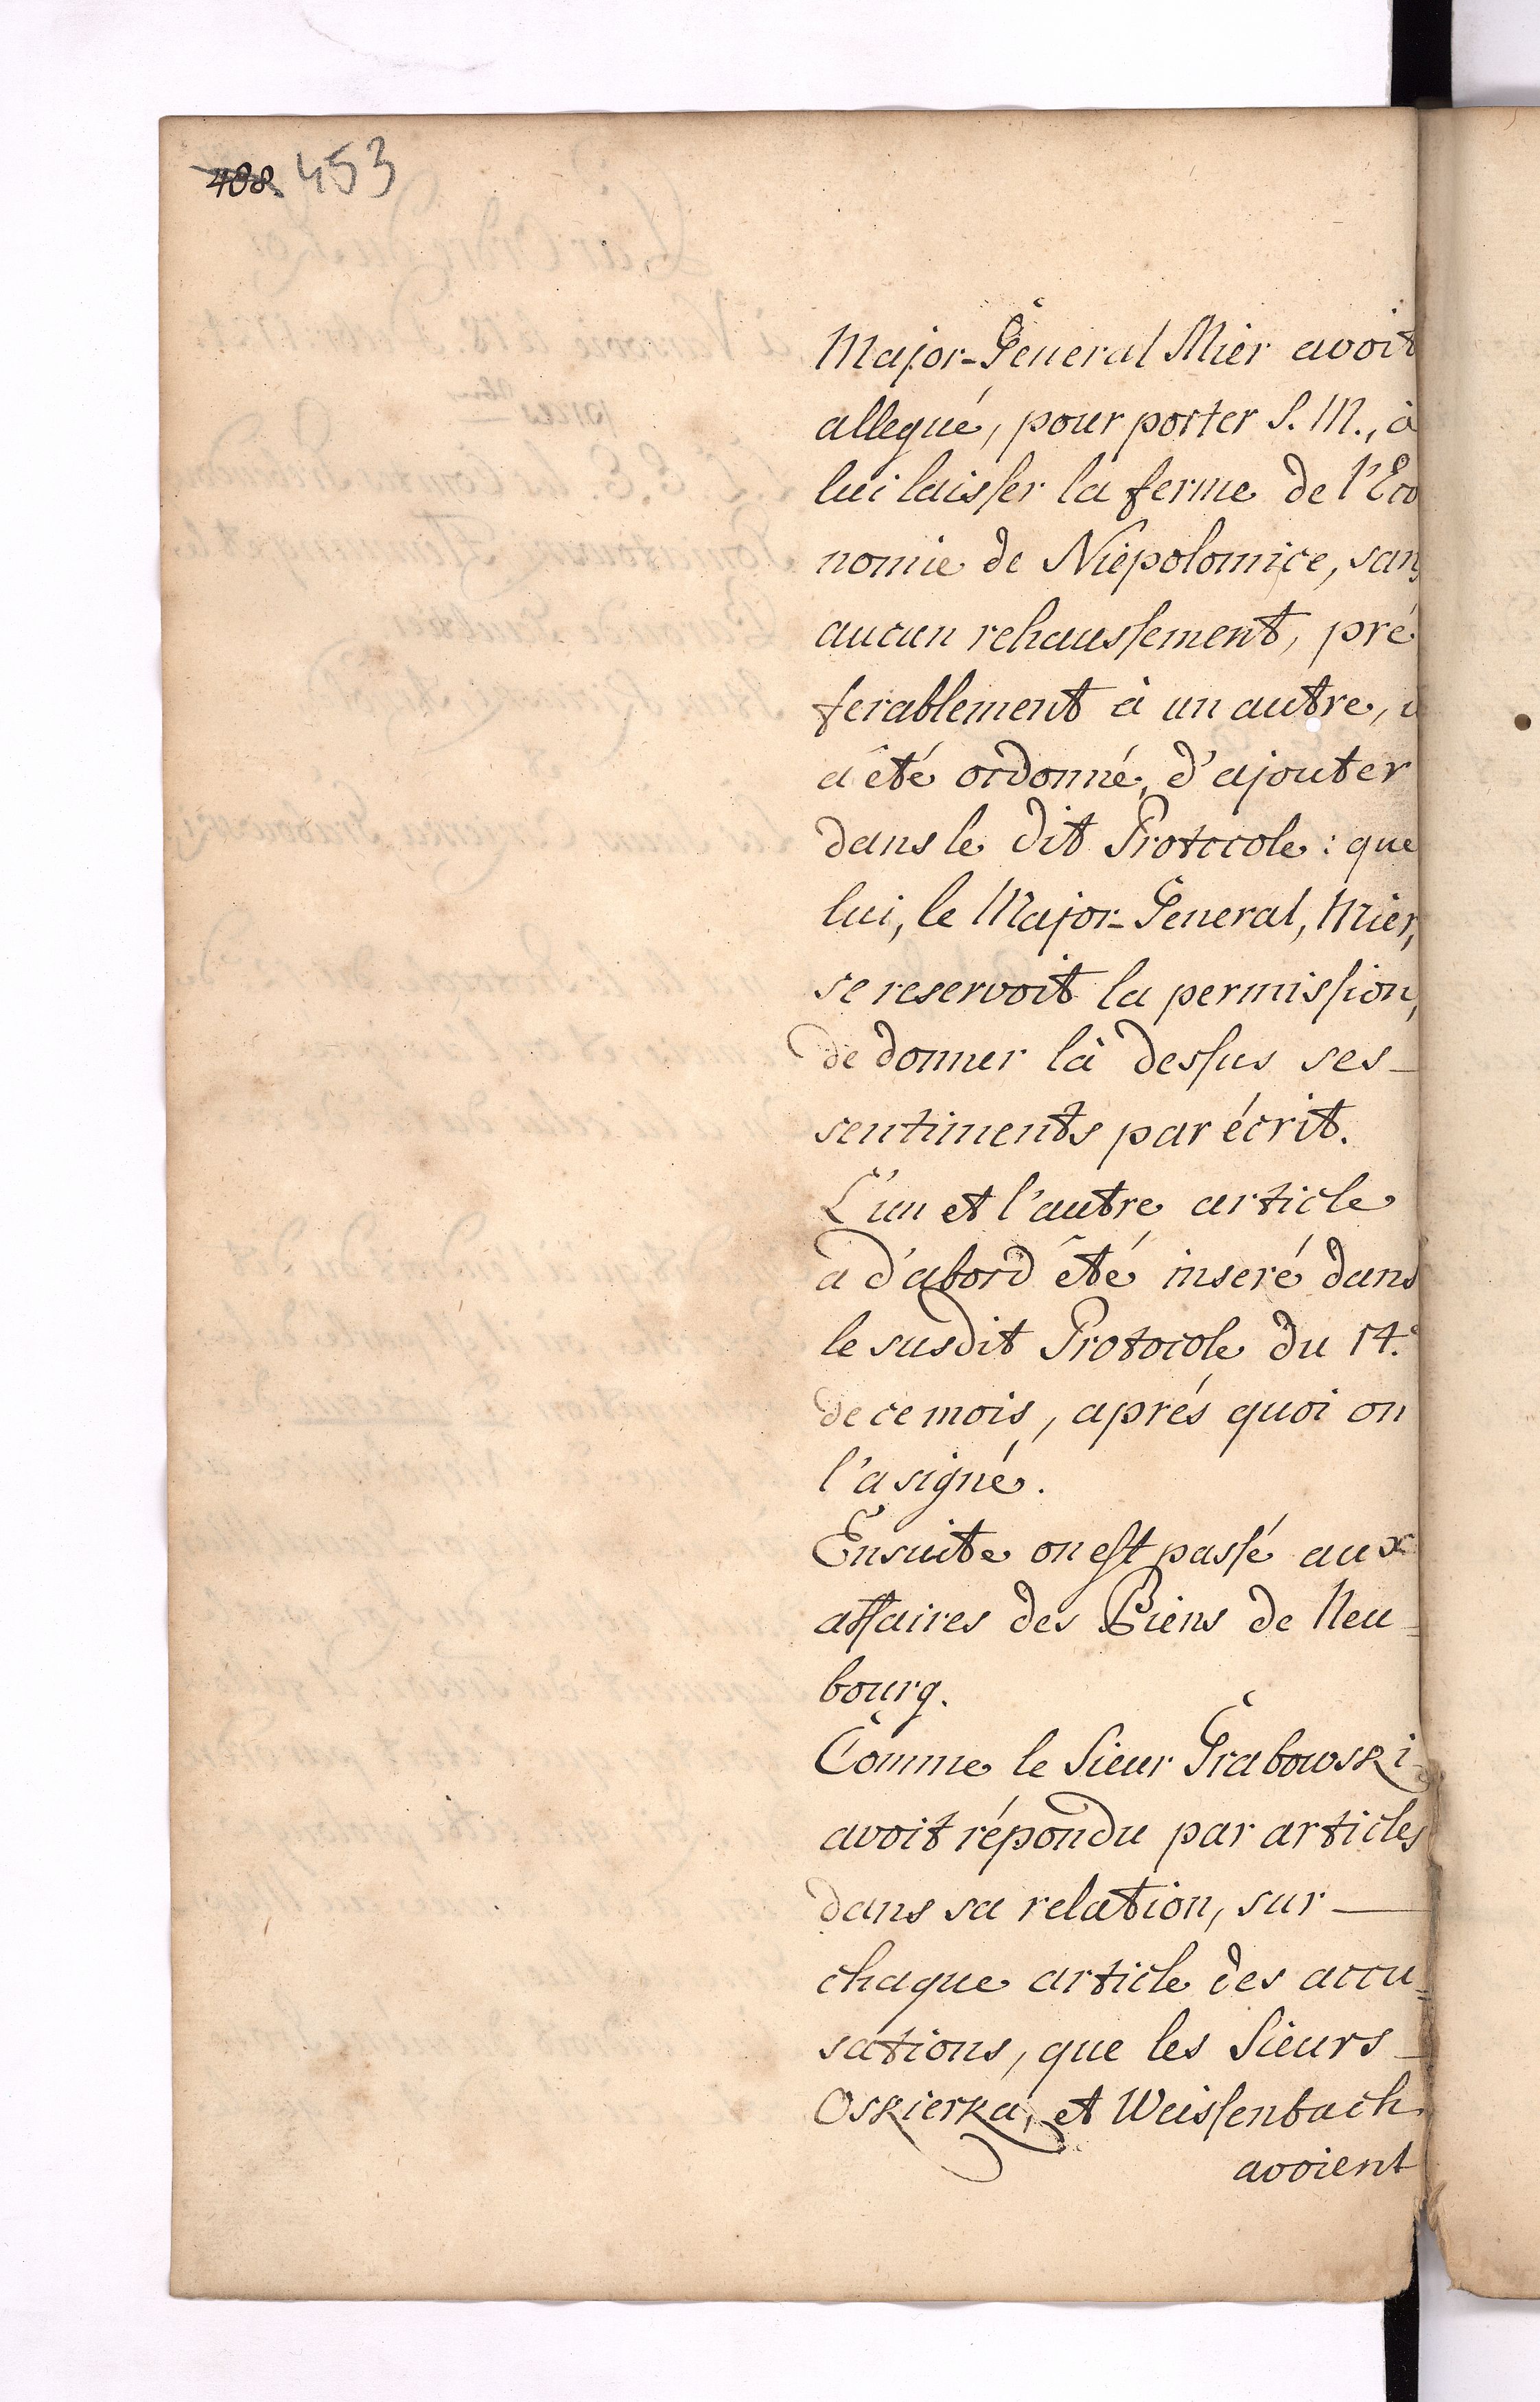 408. 453
Major-General Mier avoit
allegué, pour porter S. M., à
lui laisser la ferme de l'Eco
nomie de Niepolomice, sans
aucun rehaussement, pré
ferablement à un autre,
a êté ordonné, d'ajouter
dans le dit Protocole: que
lui, le Major-General, Mier,
se reservoit la permission,
de donner là dessus ses
sentiments par écrit.
L'un et l'autre article
a d'abord êté inseré dans
le susdit Protocole du 14.e
de ce mois, aprés quoi on
l'a signé.
Ensuite on est passé aux
affaires des Biens de Neu=
bourg.
Comme le Sieur Grabowski
avoit répondu par articles
dans sa relation, sur
chaque article des accu=
sations, que les Sieurs
Oskierka, et Weissenbach
avoient